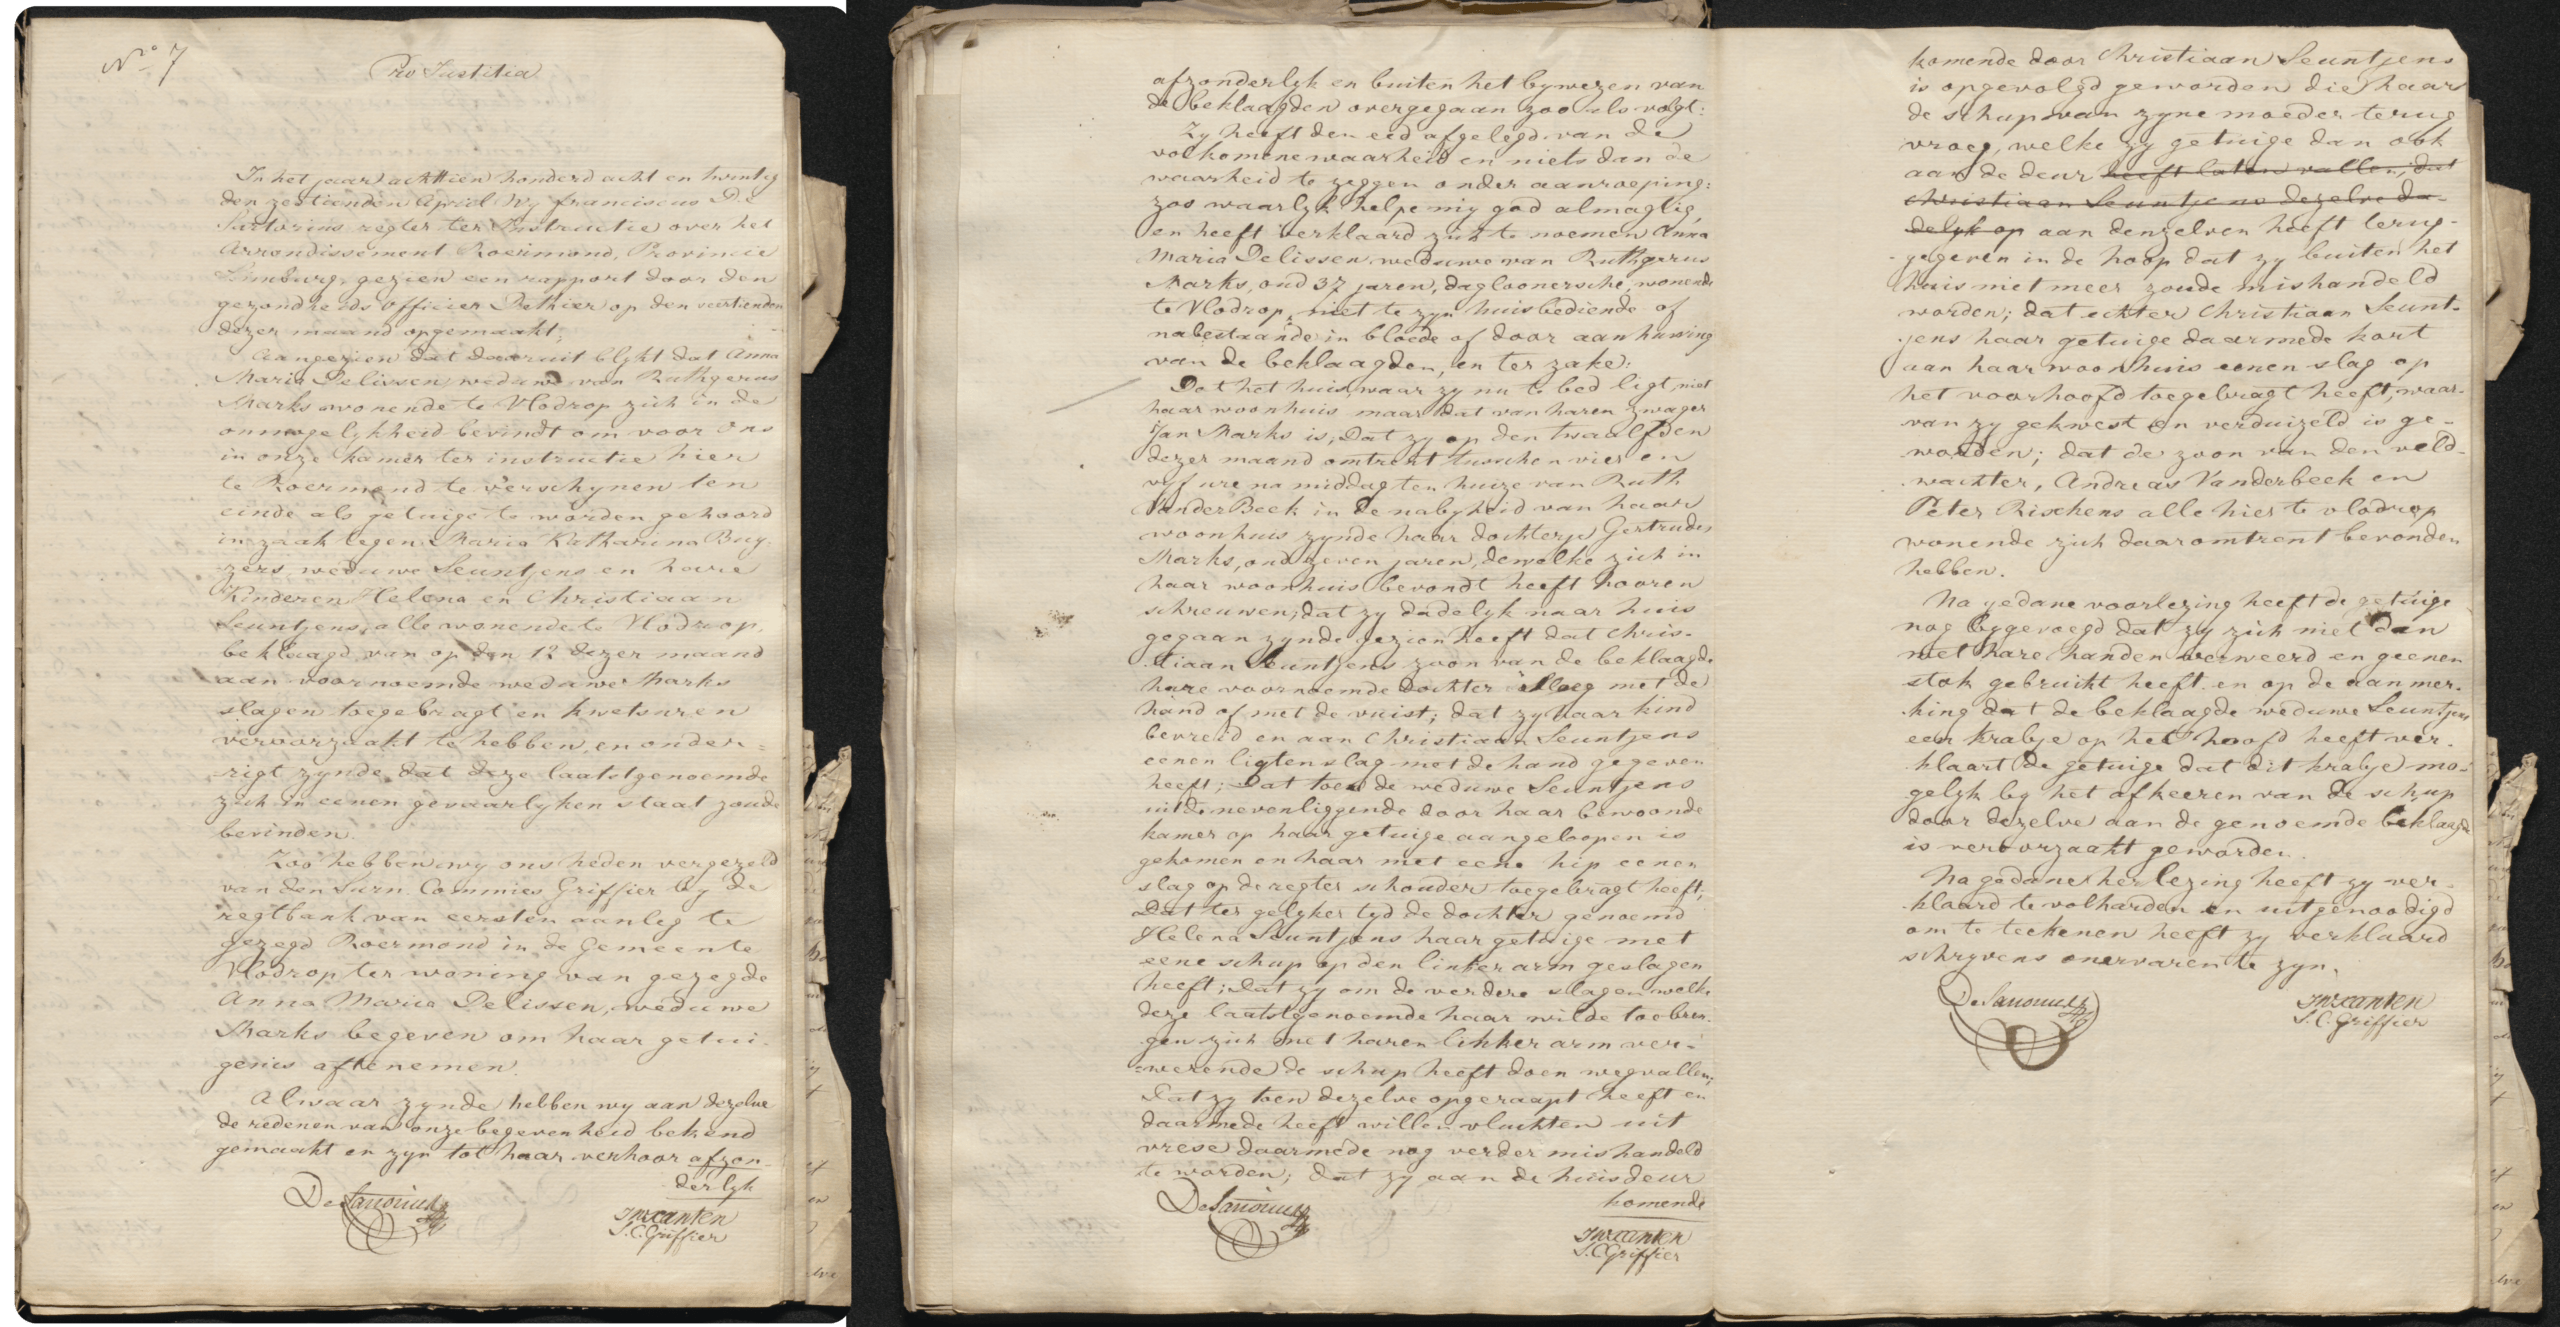 No 7
Pro Justitia
In het jaar achttien honderd acht en twintig
den zestienden April Wy franciscus De
Sartorius regter ter Instructie over het
Arrondissement Roermond, Provincie
Limburg, gezien een rapport door den
gezondheids officier Dethier op den veertienden
dezer maand opgemaakt;
Aangezien dat daaruit blykt dat Anna
Maria Delissen weduwe van Ruthgerus
Marks wonende te Vlodrop zich in de
onmogelykheid bevindt om voor Ons
in onze kamer ter instructie hier
te Roermond te verschynen ten
einde als getuige te worden gehoord
in zaak tegen Maria Katharina Buy-
zers weduwe Seuntjens en hare
Kinderen Helena en Christiaan
Seuntjens, alle wonende te Vlodrop,
beklaagd van op den 12 dezer maand
aan voornoemde weduwe Marks
slagen toegebragt en kwetsuren
veroorzaakt te hebben, en onder-
rigt zynde dat deze laatstgenoemde
zich in eenen gevaarlyken staat zoude
bevinden.
Zoo hebben wy ons heden vergezeld
van den Surn. Commies Griffier by de
regtbank van eersten aanleg te
gezegd Roermond in de Gemeente
Vlodrop ter woning van gezegde
Anna Maria Delissen, weduwe
Marks begeven om haar getui-
genis aftenemen.
Alwaar zynde hebben wy aan dezelve
de redenen van onze begevenheid bekend
gemaakt en zyn tot haar verhoor afzon-
derlyk
De Sartorius
S.C. Griffier
afzonderlyk en buiten het bywezen van
de beklaagden overgegaan zoo als volgt:
Zy heeft den eed afgelegd van de
volkomene waarheid en niets dan de
waarheid te zeggen onder aanroeping:
zoo waarlyk helpe my god almagtig,
en heeft verklaard zich te noemen Anna
Maria Delissen weduwe van Ruthgerus
Marks, oud 37 jaren, dagloonersche, wonende
te Vlodrop, niet te zyn huisbediende of
nabestaande in bloede of door aanhuwing
van de beklaagden, en ter zake:
Dat het huis, waar zy nu te bed ligt, niet
haar woonhuis maar dat van haren zwager
Jan Marks is, Dat zy op den twaalfden
dezer maand omtrent tusschen vier en
vyf ure na middag ten huize van Ruth
VanderBeek in de nabyheid van haar
woonhuis zynde haar dochterje Gertrudes
Marks, oud zeven jaren, dewelke zich in
haar woonhuis bevondt heeft hooren
schreuwen; dat zy dadelyk naar huis
gegaan zynde gezien heeft dat Chris-
tiaan Seuntjens zoon van de beklaagde
hare voornoemde dochter sloeg met de
hand of met de vuist; dat zy haar kind
bevreid en aan Christiaan Seuntjens
eenen ligten slag met de hand gegeven
heeft; Dat toen de weduwe Seuntjens
uit de nevenliggende door haar bewoonde
kamer op haar getuige aangeloopen is
gekomen en haar met eene hip eenen
slag op de regter schouder toegebragt heeft;
Dat ter gelyker tyd de dochter genoemd
Helena Seuntjens haar getuige met
eene schup op den linker arm geslagen
heeft; Dat zy om de verdere slagen welke
deze laatstgenoemde haar wilde toebren-
gen zich met haren linker arm ver-
werende de schup heeft doen wegvallen;
Dat zy toen dezelve opgeraapt heeft en
daarmede heeft willen vluchten uit
vrese daarmede nog verder mishandeld
te worden; dat zy aan de huisdeur
komende
De Sartorius
S.C. Griffier
komende door Christiaan Seuntjens
is opgevolgd geworden die haar
de schup van zyne moeder terug
vroeg, welke zy getuige dan ook
aan de deur heeft laten vallen; dat
Christiaan Seuntjens dezelve da-
delyk op aan denzelven heeft terug-
gegeven in de hoop dat zy buiten het
huis niet meer zoude mishandeld
worden; dat echter Christiaan Seunt-
jens haar getuige daarmede kort
aan haar woonhuis eenen slag op
het voorhoofd toegebragt heeft, waar-
van zy gekwest en verduizeld is ge-
worden; dat de zoon van den veld-
wachter, Andreas Vanderbeek en
Peter Rischens alle hier te vlodrop
wonende zich daaromtrent bevonden
hebben.
Na gedane voorlezing heeft de getuige
nog bygevoegd dat zy zich niet dan
met hare handen verweerd en geenen
stok gebruikt heeft. en op de aanmer-
king dat de beklaagde weduwe Seuntjens
een krabje op het hoofd heeft ver-
klaart de getuige dat dit krabje mo-
gelyk by het afkeeren van de schup
door dezelve aan de genoemde beklaagde
is veroorzaakt geworden.
Na gedane herlezing heeft zy ver-
klaard te volharden en uitgenoodigd
om te teekenen heeft zy verklaard
schryvens onervaren te zyn.
De Sartorius
S.C. Griffier